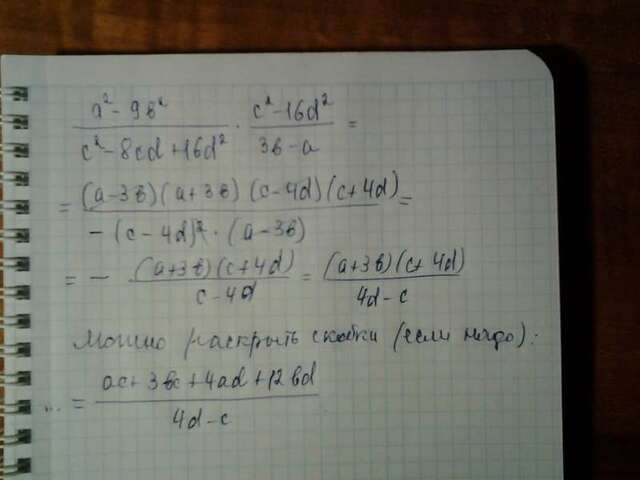 a² - 9в² / c² - 8cd + 16d² · c² - 16d² / 3в - a =
= (a - 3в)(a + 3в)(c - 4d)(c + 4d) / -(c - 4d)² · (a - 3в) =
= - (a + 3в)(c + 4d) / c - 4d = (a + 3в)(c + 4d) / 4d - c
Можно раскрыть скобки (если надо):
... = ac + 3вc + 4ad + 12вd / 4d - c